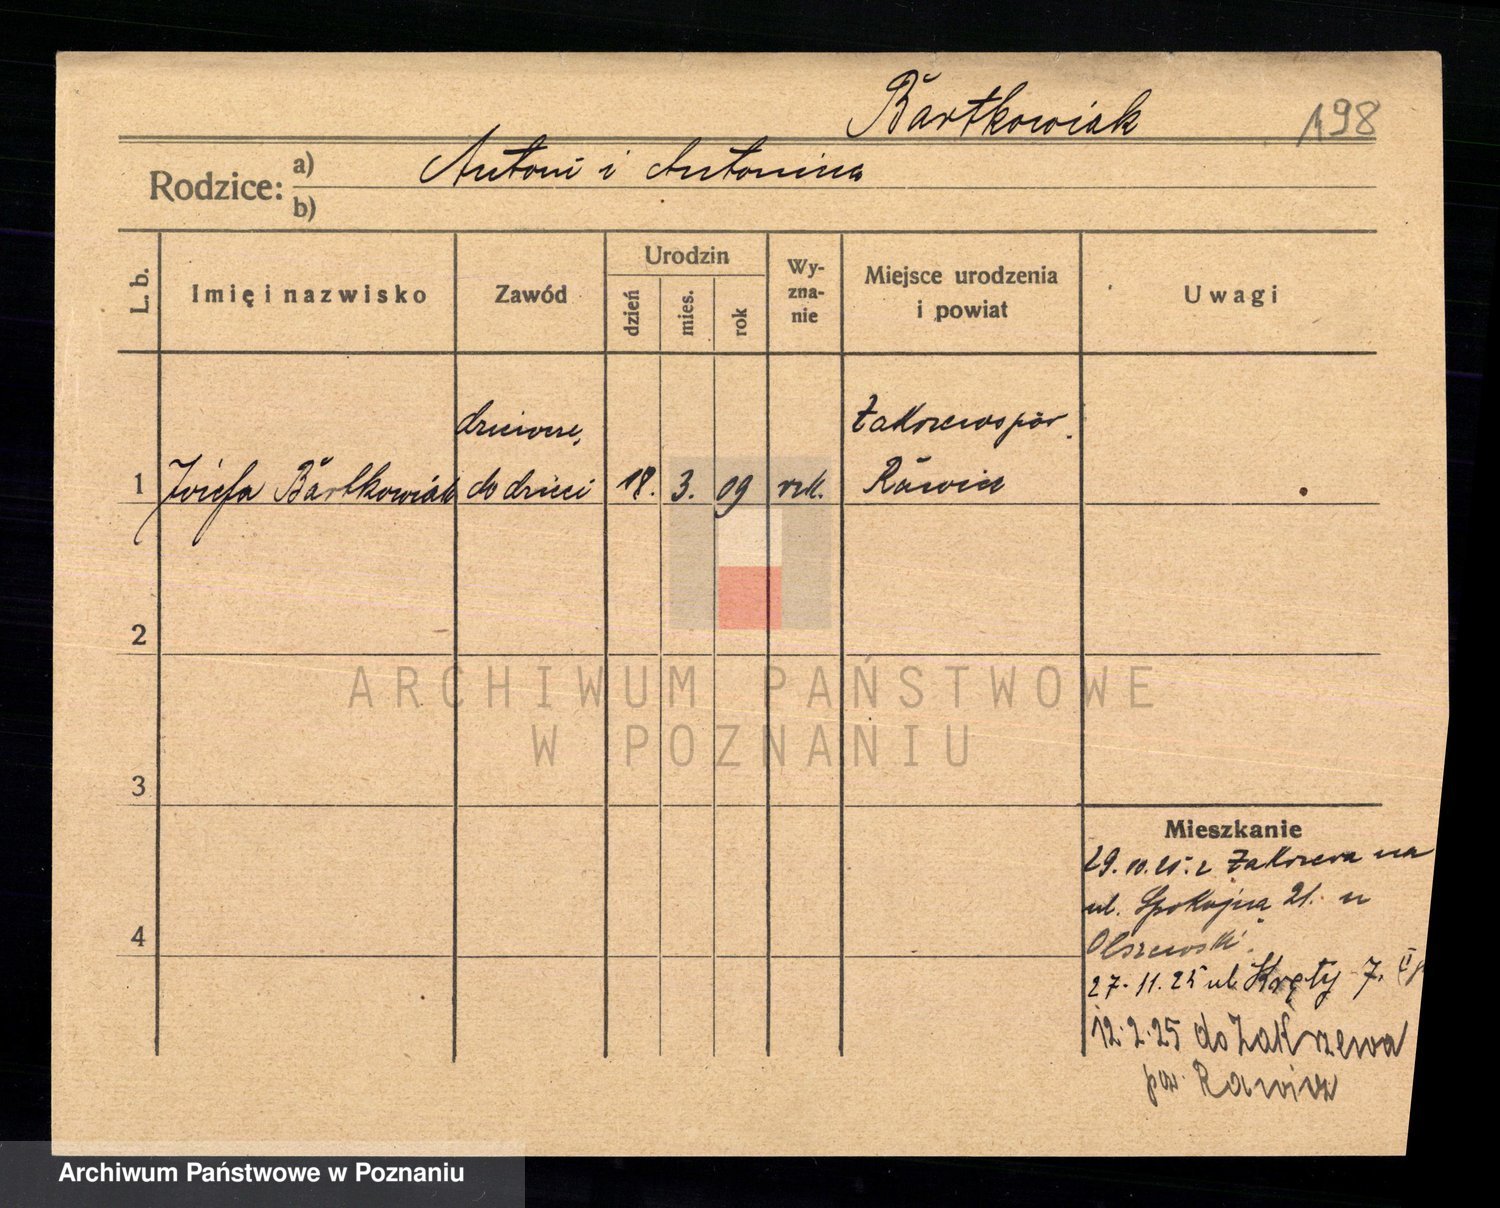 Bartkowiak 198
Rodzice: a) Antoni i Antonina
b)
L. b.
Imię i nazwisko
Zawód
Urodzin
dzień
mies.
rok
Wy-
zna-
nie
Miejsce urodzenia
i powiat
Uwagi
1 Józefa Bartkowiak
do dzieci
18. 3. 09 rzk.
Rawicz
2
3
4
ARCHIWUM PAŃSTWOWE
W POZNANIU
Mieszkanie
Zakrzewa na
ul. Spokojna 21. u
Olszewski.
27.11.25 ul. Kręty 7.
12.2.25 do Zakrzewa
pow. Rawicz
Archiwum Państwowe w Poznaniu